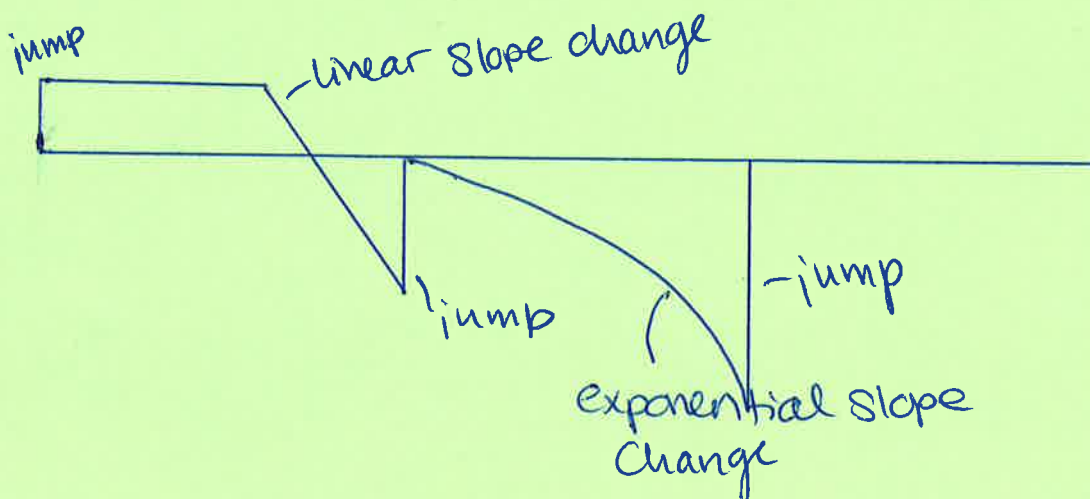 jump
linear slope change
jump
jump
exponential slope
change